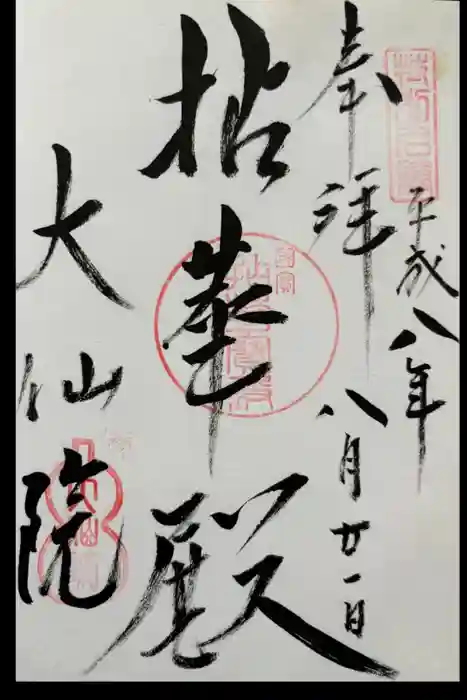 奉拝
平成八年
八月廿一日
拈華殿
大仙院